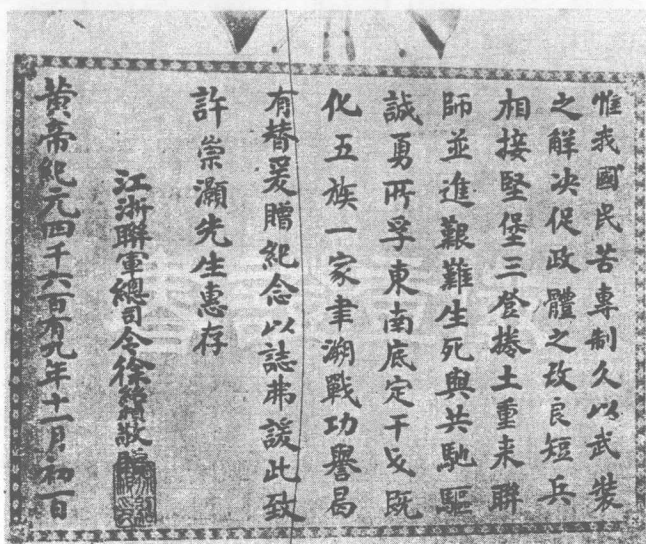 惟我國民苦專制久以武裝
之解决促政體之改良短兵
相接堅堡三登捲土重来聯
師並進艱難生死與共馳驅
誠勇所孚東南底定干戈既
化五族一家聿溯戰功譽曷
有替爰贈紀念以誌弗諼此致
許崇灝先生惠存
江浙聯軍總司令徐紹楨敬贈
黄帝紀元四千六百有九年十一月初一日